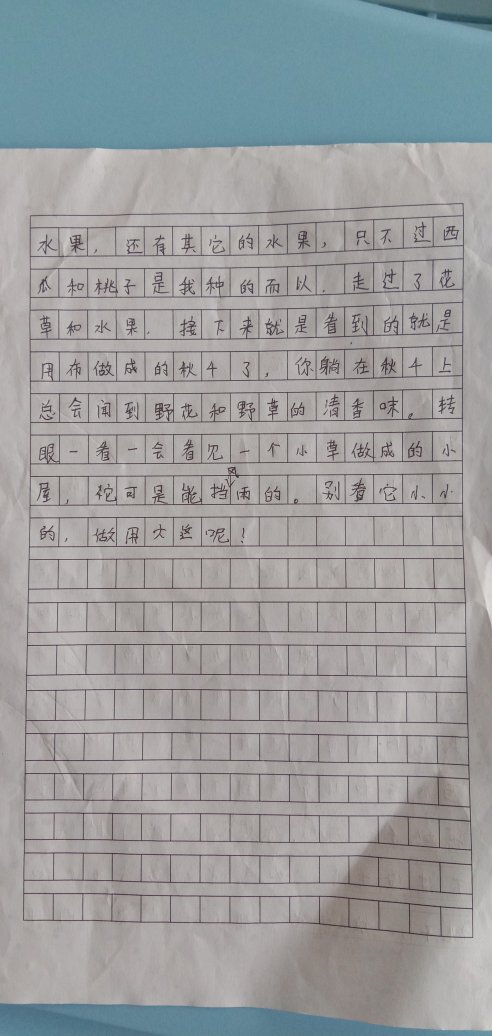 水果，还有其它的水果，只不过西
瓜和桃子是我种的而以．走过了花
草和水果．接下来就是看到的就是
用布做成的秋千了，你躺在秋千上
总会闻到野花和野草的清香味。转
眼一看一会看见一个小草做成的小
屋，它可是能挡风雨的。别看它小小
的，做用大这呢！